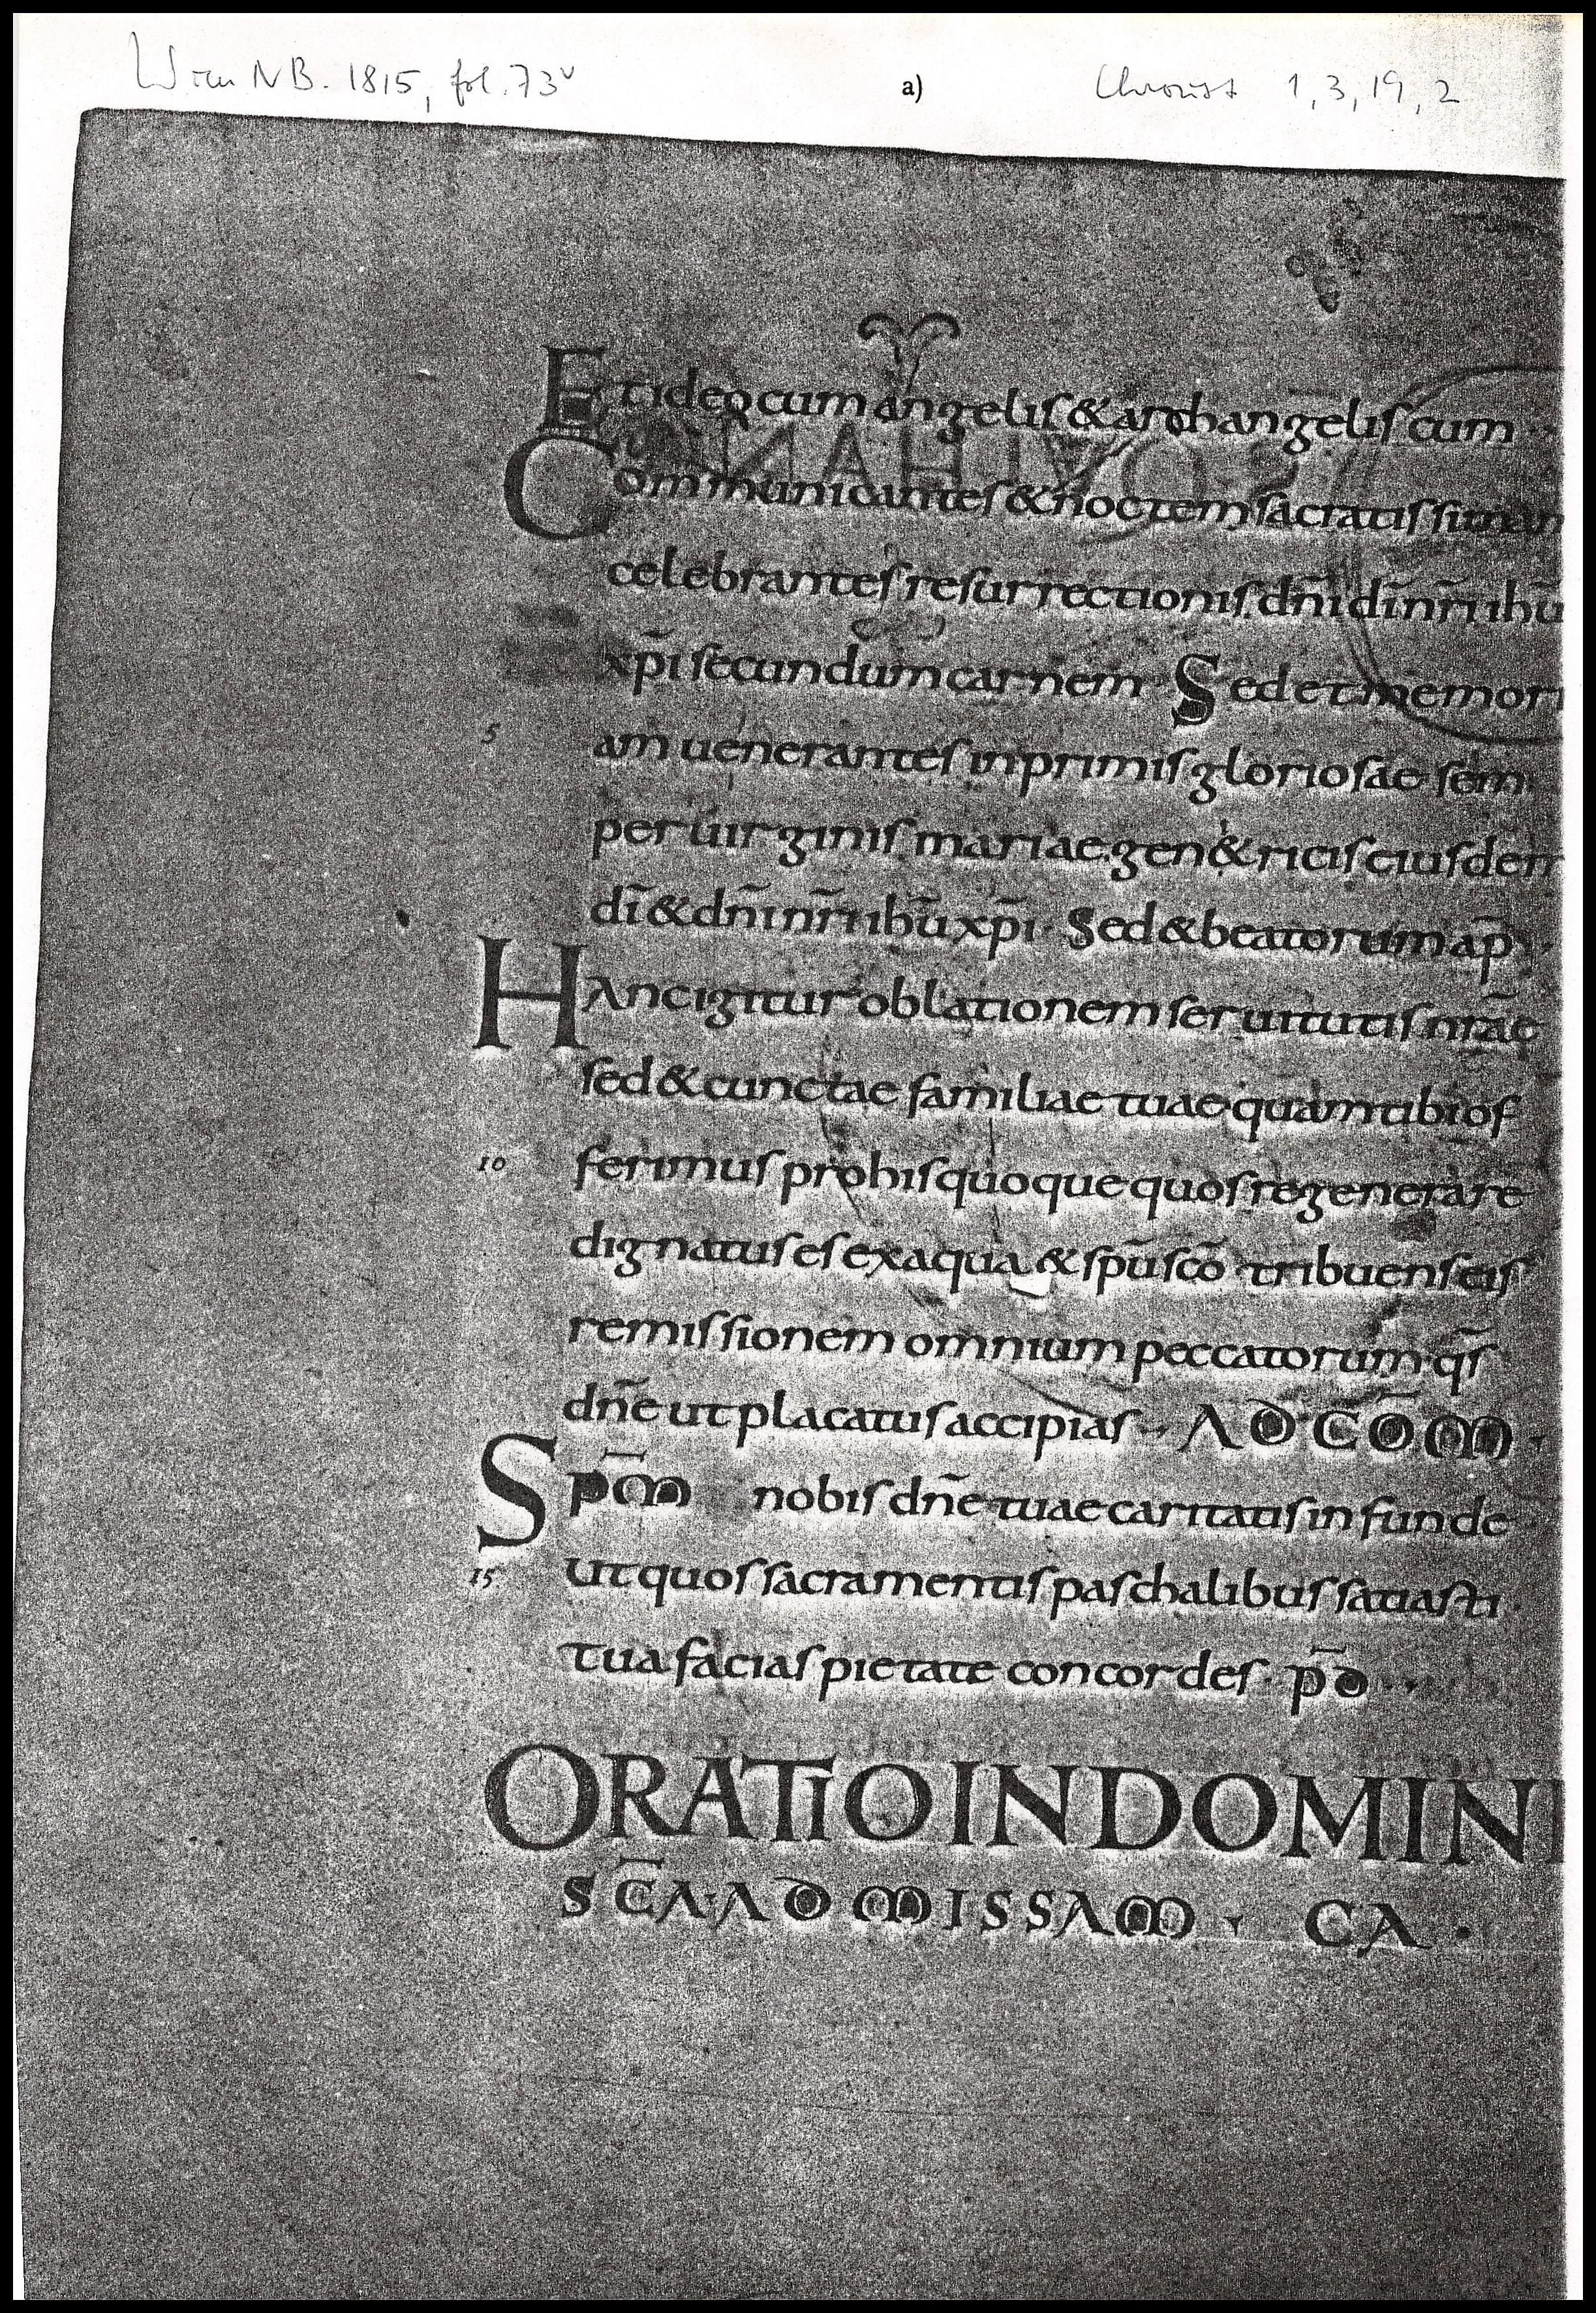 Wien NB. 1815, fol. 73v
a)
Chroust 1, 3, 19, 2
Et ideo cum angelis & archangelis cum
Communicantes & noctem sacratissiman
celebrantes resurrectionis dn̄i dī nr̄i ihū
xp̄i secundum carnem · Sed et memori
5
am uenerantes inprimis gloriosae sem
per uirginis mariae gen&ricis eiusdem
dī & dn̄i nr̄i ihū xp̄i · Sed & beatorum ap̄ ·
Hanc igitur oblationem seruitutis nrāe
sed & cunctae familiae tuae quam tibi of
10
ferimus pro his quoque quos regenerare
dignatus es ex aqua & spū scō tribuens eis
remissionem omnium peccatorum · qs̄
dn̄e ut placatus accipias · AD COM̄ ·
SPM̄ nobis dn̄e tuae caritatis infunde
15
Ut quos sacramentis paschalibus satiasti ·
tua facias pietate concordes · p̄d ···
ORATIO IN DOMINI
SC̄A · AD MISSAM · CA ·